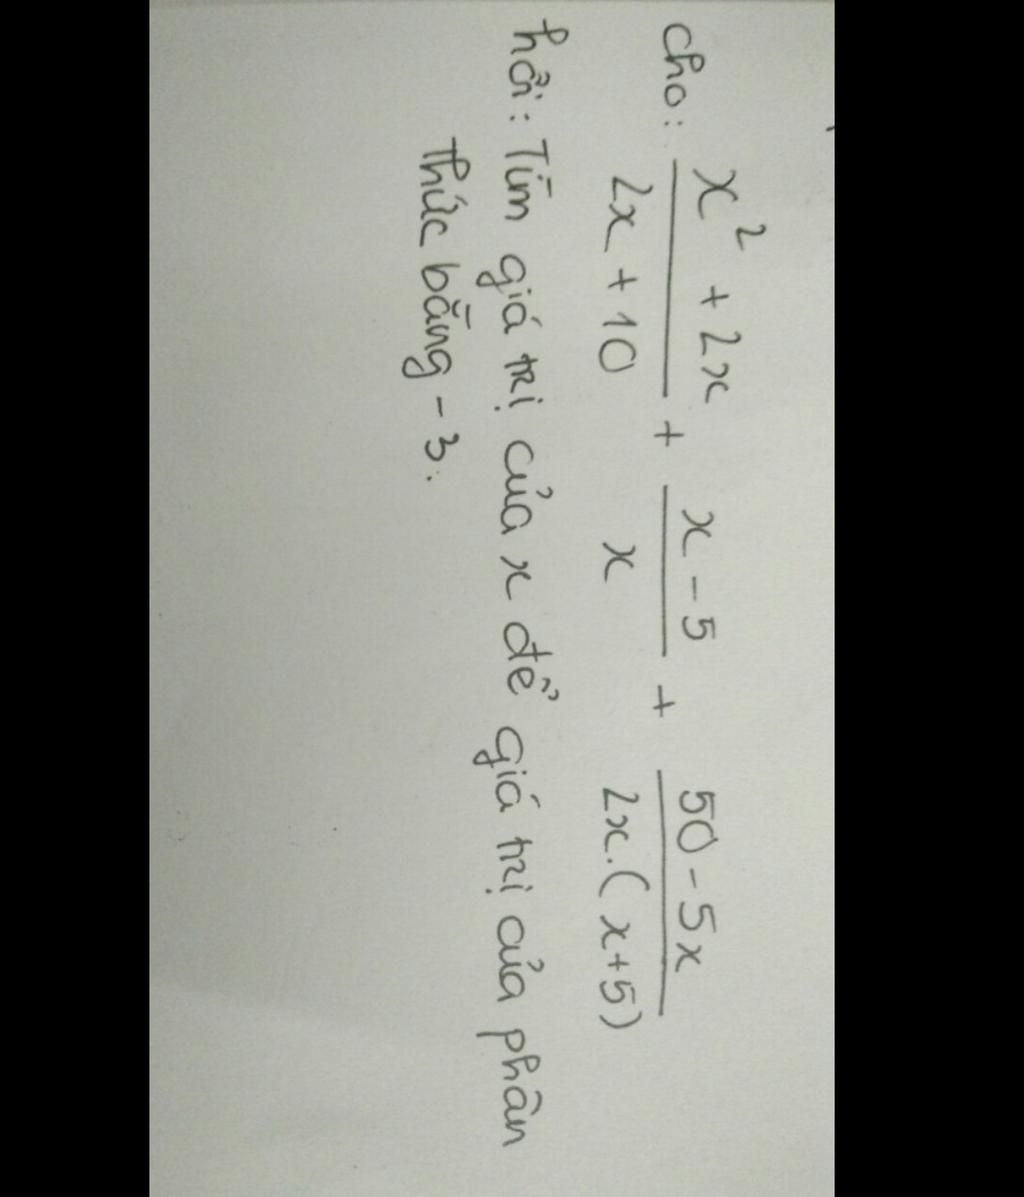 cho: \frac{x^2 + 2x}{2x + 10} + \frac{x - 5}{x} + \frac{50 - 5x}{2x.(x+5)}
hỏi: Tìm giá trị của x để giá trị của phân
thức bằng -3.